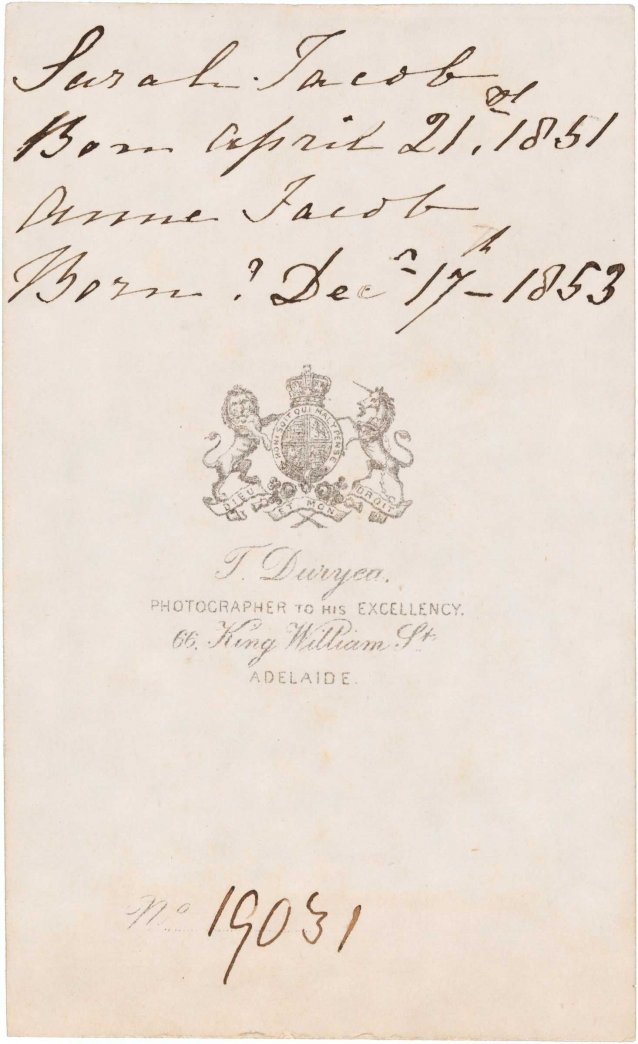 Sarah Jacob
Born April 21st. 1851
Anne Jacob
Born ? Decr 17th - 1853
HONI SOIT QUI MAL Y PENSE
DIEU ET MON DROIT
T. Duryea.
PHOTOGRAPHER TO HIS EXCELLENCY.
66, King William St.
ADELAIDE.
No 19031